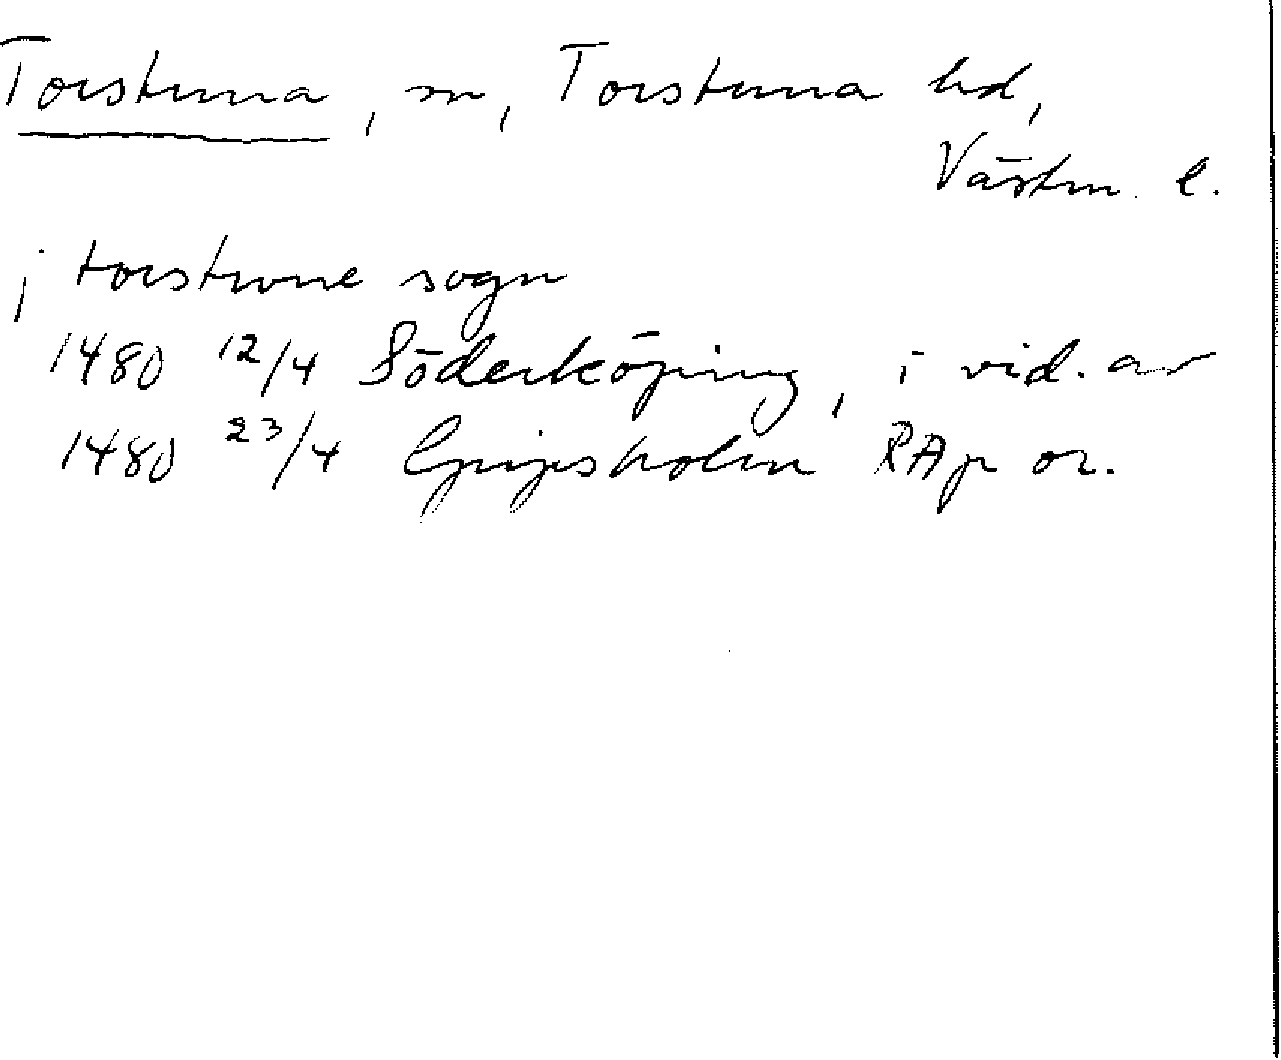 Torstuna, sn, Torstuna hd,
Västm. l.
j torstwne sogn
1480 12/4 Söderköping, i vid. av
1480 23/4 Gripsholm RAp or.